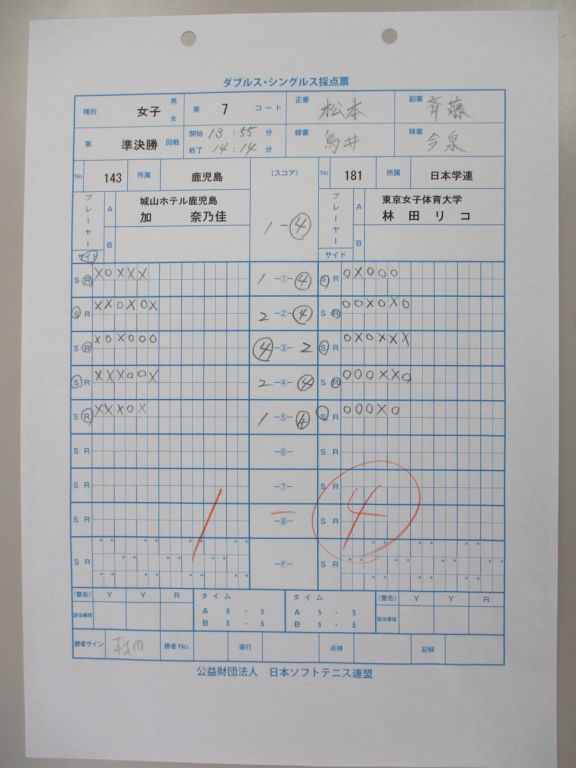 ダブルス・シングルス採点票
種別 女子 男 女 第 7 コート 正審 松本 副審 斉藤
第 準決勝 回戦 開始 13:55 分 終了 14:14 分 線審 鳥井 線審 今泉
No 143 所属 鹿児島 (スコア) No 181 所属 日本学連
プレーヤー A 城山ホテル鹿児島 プレーヤー A 東京女子体育大学
加 奈乃佳 林田リコ
B 1-④ B
サイド サイド
S R XOXXX 1-①-④ S R OXOOO
S R XXOXOX 2-②-④ S R OOXOXO
S R XOXOOO ④-③-2 S R OXOXXX
S R XXXOOX 2-④-④ S R OOOXXO
S R XXXOX 1-⑤-④ S R OOOXO
S R -⑥- S R
S R -⑦- S R
S R -⑧- S R
1 - 4
S R -Ⓕ- S R
(警告) Y Y R タイム タイム (警告) Y Y R
該当事項 A 5・5 A 5・5 該当事項
B 5・5 B 5・5
勝者サイン 勝者No. 進行 点検 記録
公益財団法人 日本ソフトテニス連盟